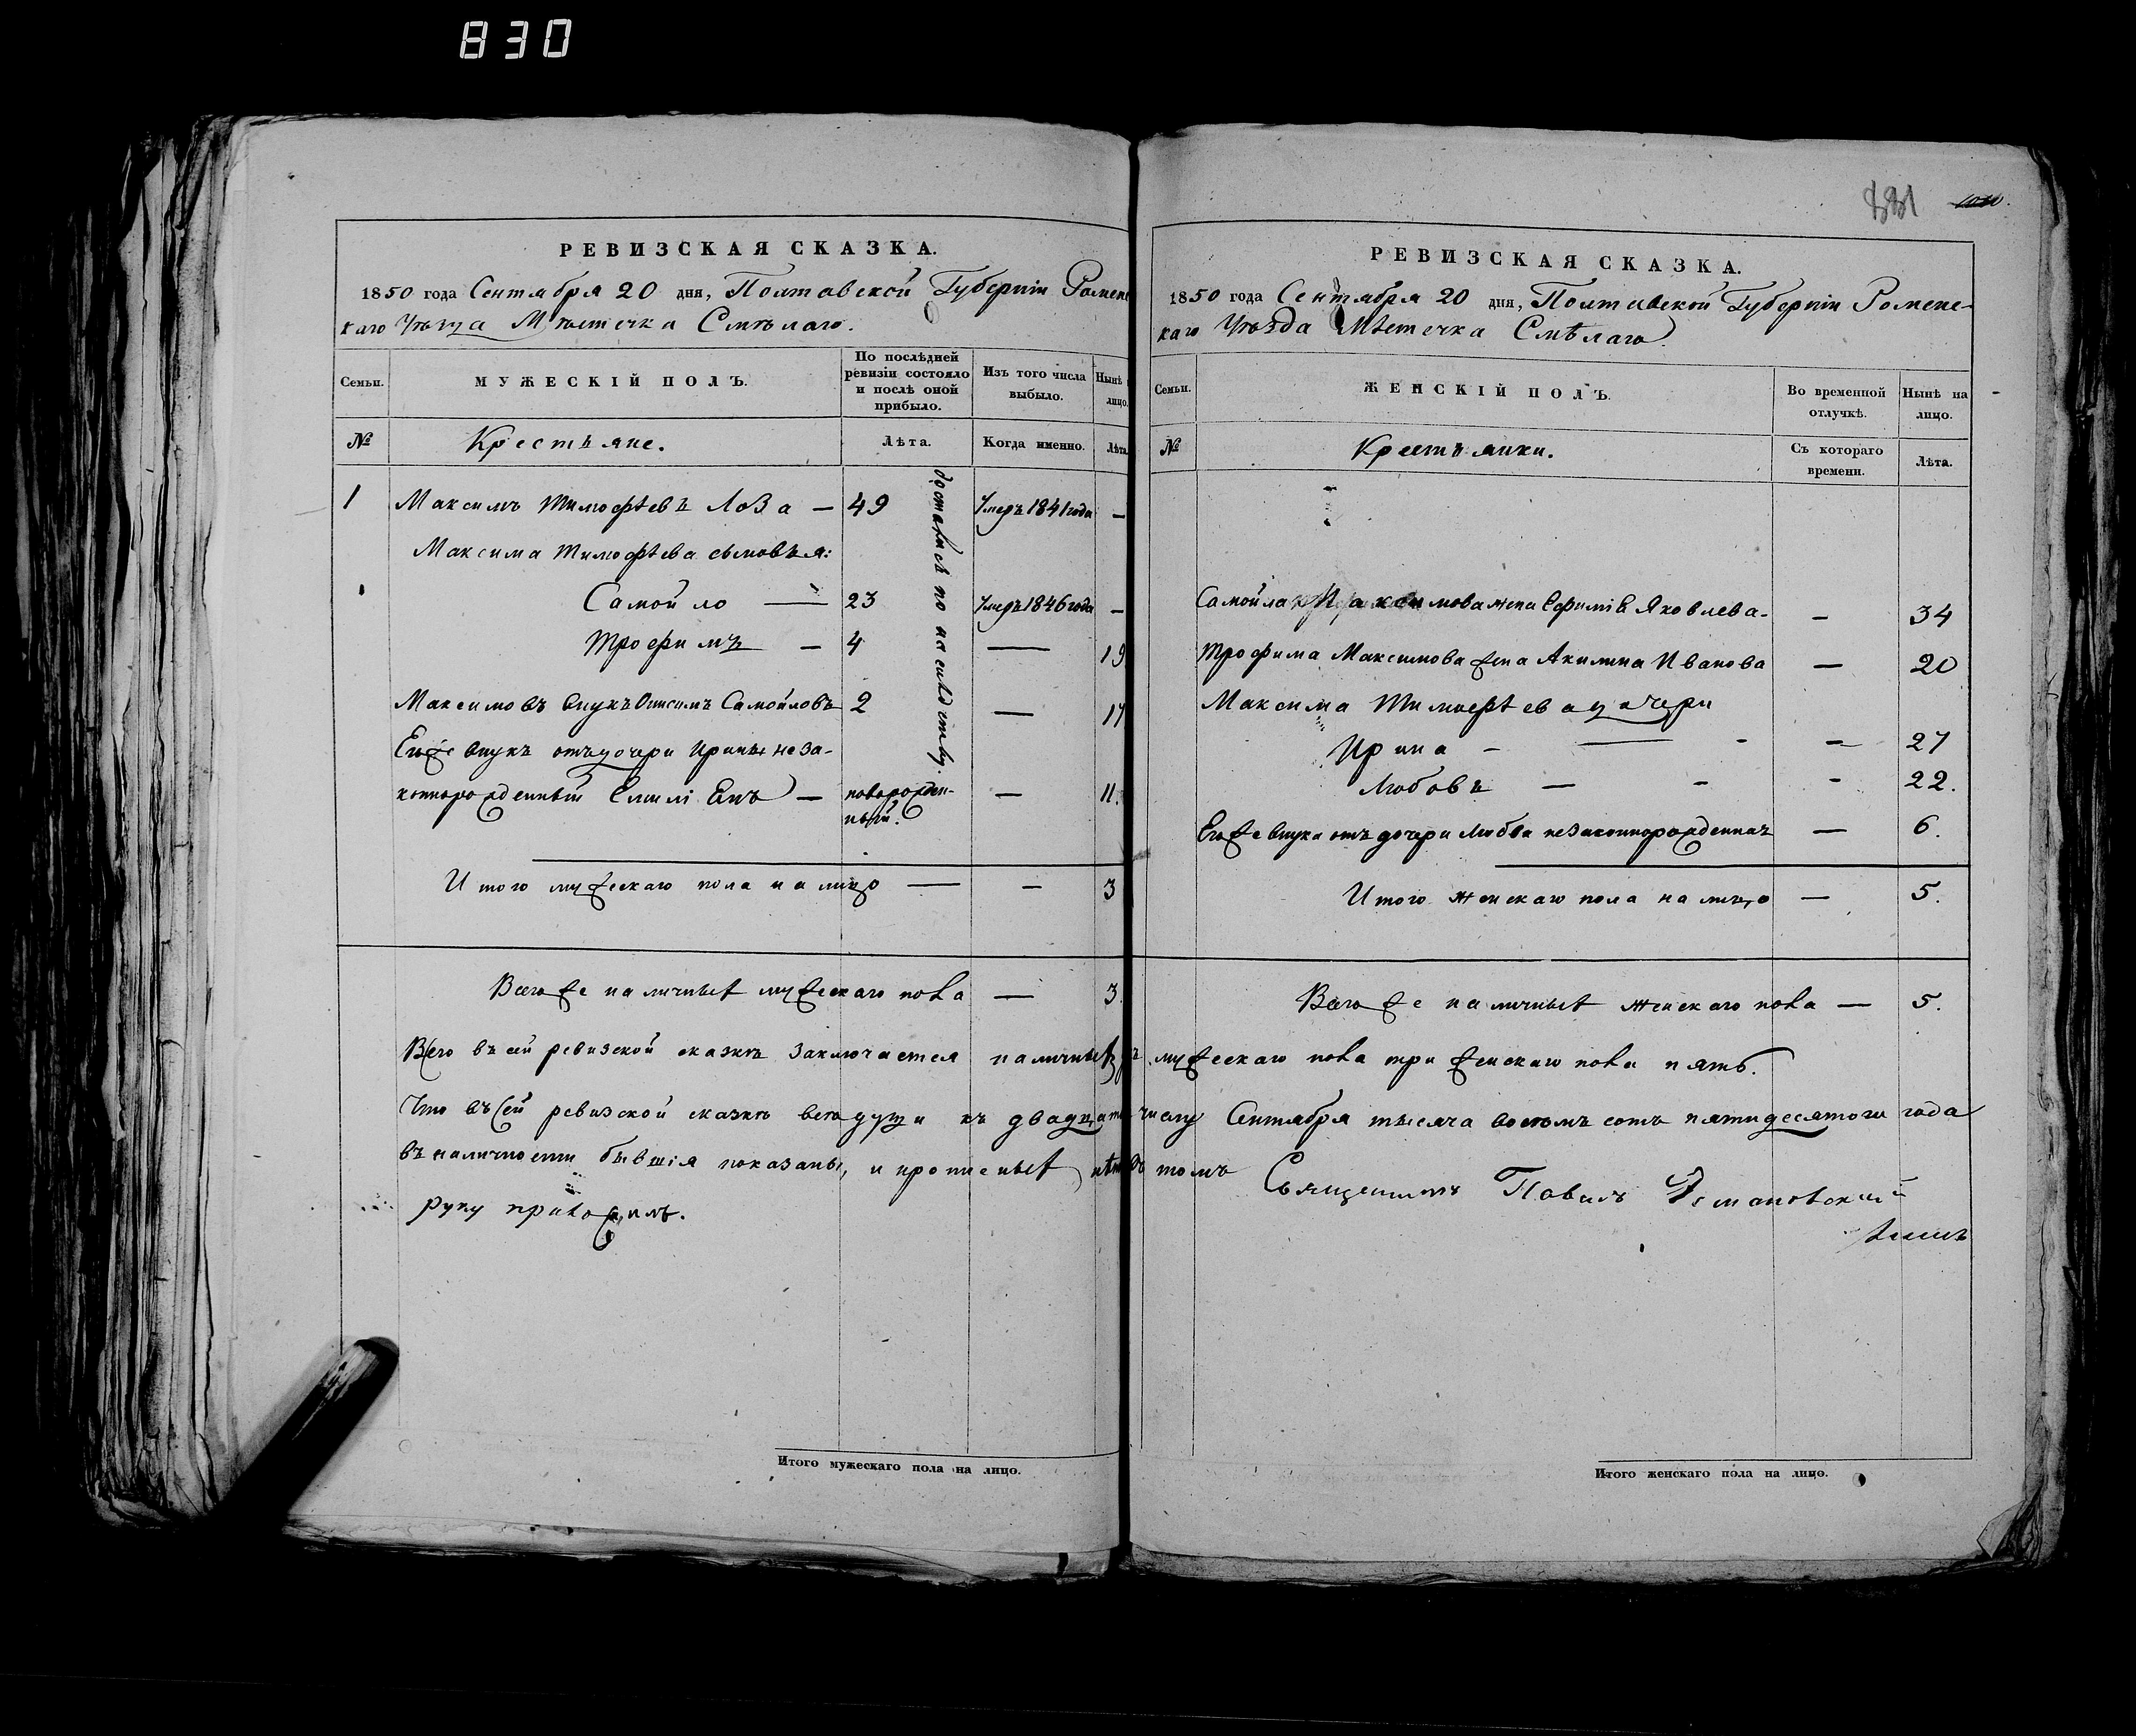 830
881
РЕВИЗСКАЯ СКАЗКА.
1850 года Сентября 20 дня, Полтавской Губерніи Роменс
каго Уѣзда Мѣстечка Смѣлаго.
Семьи.
МУЖЕСКІЙ ПОЛЪ.
По послѣдней
ревизіи состояло
и послѣ оной
прибыло.
Изъ того числа
выбыло.
Нынѣ
лицо.
№
Крестьяне.
Лѣта.
Когда именно.
Лѣта.
1 Максимъ Тимофѣевъ Лоза — 49 Умеръ 1841 года —
Максима Тимофѣева сыновья:
Самойло — 23 Умеръ 1846 года —
Трофимъ — 4 — 19
Максимовъ внукъ Онисимъ Самойловъ 2 — 17
Егоже внукъ отъ дочери Ирины неза-
коннорожденный — новорожден- — 11.
ный.
достались по наслѣдству.
Итого мужескаго пола на лицо — — 3
Всегоже наличныхъ мужескаго пола — 3.
РЕВИЗСКАЯ СКАЗКА.
1850 года Сентября 20 дня, Полтавской Губерніи Роменс-
каго Уѣзда Мѣстечка Смѣлаго
Семьи.
ЖЕНСКІЙ ПОЛЪ.
Во временной
отлучкѣ.
Нынѣ на
лицо.
№
Крестьянки.
Съ котораго
времени.
Лѣта.
Самойла Максимова жена Ефимія Яковлева — — 34
Трофима Максимова жена Акилина Иванова — 20
Максима Тимофѣева дочери
Ирина — — 27
Любовь — — 22.
Егоже внука отъ дочери Любви незаконнорожденная — 6.
Итого женскаго пола на лицо — 5.
Всегоже наличныхъ женскаго пола — 5.
Всего въ сей ревизской сказкѣ заключается наличныхъ мужескаго пола три женскаго пола пять.
Что въ сей ревизской сказкѣ всѣ души къ двадцатому числу Сентября тысяча восемь сотъ пятидесятого года
въ наличности бывшія показаны, и прописныхъ нѣтъ въ томъ
руку приложилъ.
Священникъ Павелъ
Итого мужескаго пола на лицо.
Итого женскаго пола на лицо.